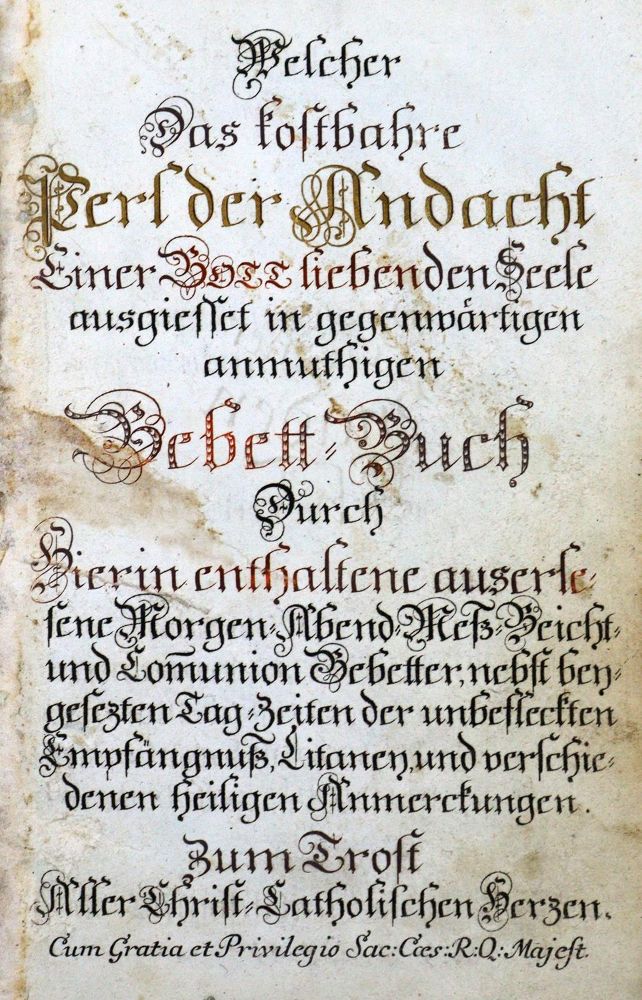 Welcher
Das kostbahre
Perl der Andacht
Einer GOTT liebenden Seele
ausgiesset in gegenwärtigen
anmuthigen
Gebett-Buch
Durch
Hierin enthaltene auserle-
sene Morgen-Abend-Meß-Beicht-
und Com̄union Gebetter, nebst bey-
gesezten Tag-Zeiten der unbefleckten
Empfängnuß, Litaney, und verschie-
denen heiligen Anmerckungen.
Zum Trost
Aller Christ-Catholischen Herzen.
Cum Gratia et Privilegio Sac: Cæs: R: Q: Majest.